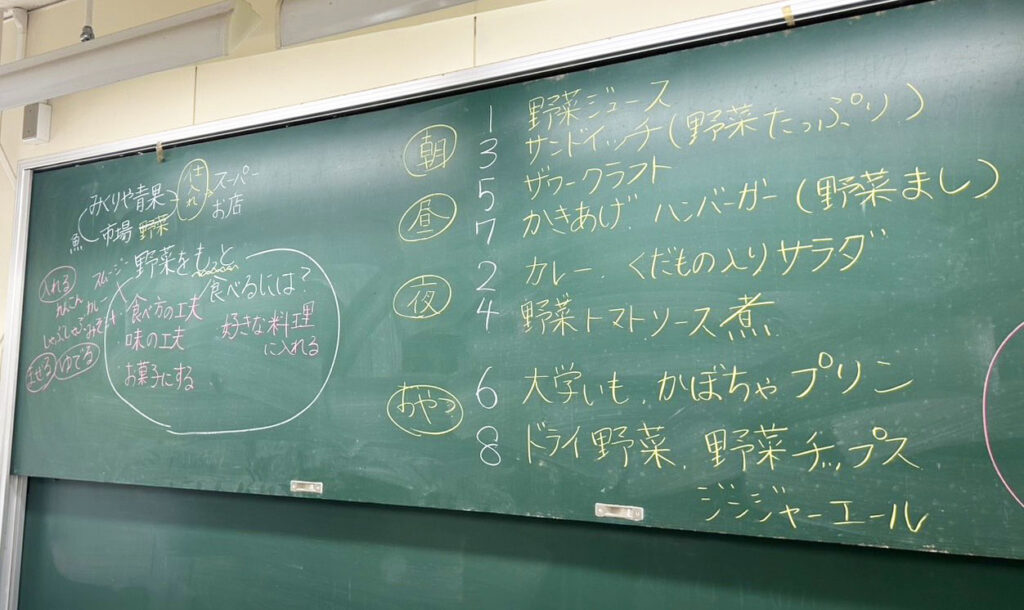 みくりや青果
仕入れ
スーパー
お店
魚 市場 野菜
野菜をもっと
食べるには?
食べ方の工夫
味の工夫
お菓子にする
好きな料理
に入れる
入れる
スムージー
カレー
しゃぶしゃぶ
混ぜる ゆでる
朝
1 野菜ジュース
3 サンドイッチ(野菜たっぷり)
昼
5 ザワークラフト
7 かきあげ ハンバーガー(野菜まし)
夜
2 カレー、くだもの入りサラダ
4 野菜トマトソース煮
おやつ
6 大学いも、かぼちゃプリン
8 ドライ野菜、野菜チップス
ジンジャーエール